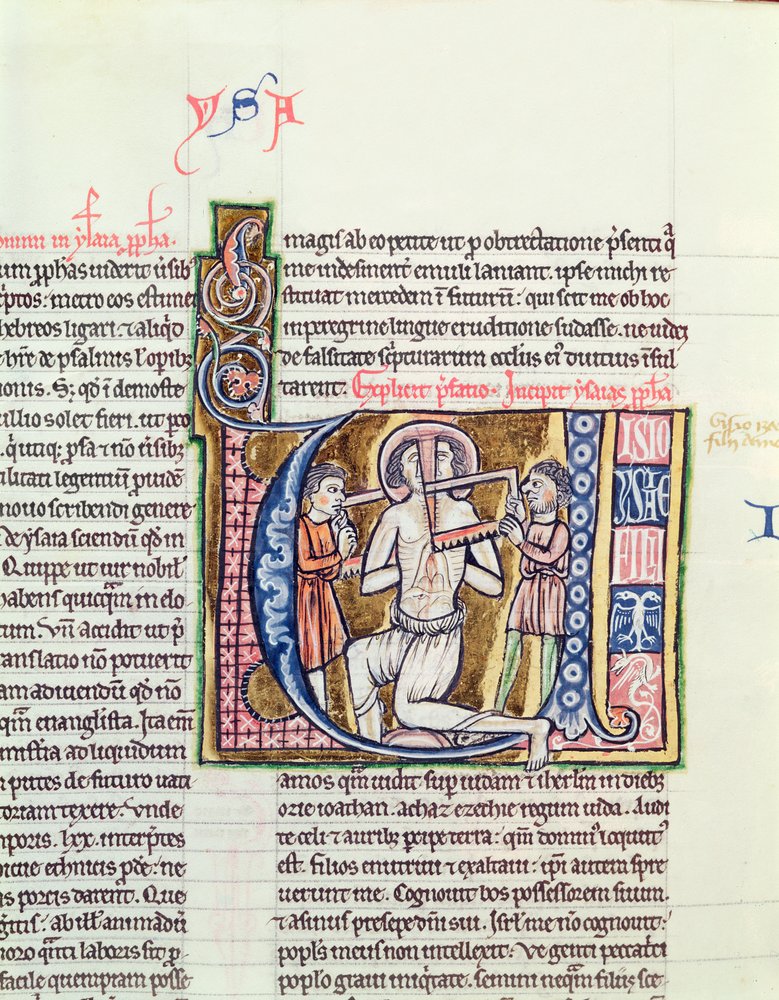 YSA
in ysaia ppha.
um pphas uiderit uersib
hebreos ligari ⁊ aliqd
hre de psalmis l opib
ionis. Sz qd i demoste
tullio solet fieri. ut p
qutiq; psa ⁊ no uersib;
utilitati legentium prouiden
nouo scribendi genere
de ysaia sciendum qd in
Quippe ut uir nobil
habens quicqm in elo
tum. Vn accidit ut p
translatio no potuerit
amadiuendu qd no
qm euanglista. Ita em
misteria ad liquidum
n putes de futuro uati
toriam texere. Vnde
mporis. lxx. interptes
ethnicis pde: ne
as porcis darent. Que
oro qnti laboris sit p
facile quempiam posse
magis ab eo petite ut p obtrectatione psenti q
me indesinent emuli laniant. ipse michi re
stituat mercedem i futuru: qui scit me ob hoc
in peregrine lingue eruditione sudasse. ne iudei
de falsitate scpturarum ecclis ei diutius isul
tarent. Explicit pfatio. Incipit ysaias ppha
ISIO
YSAIE
FILII
amos qm uidit sup iudam ⁊ ihrlm in dieb;
ozie ioathan. achaz ezechie regum iuda. Audi
te celi ⁊ aurib; pcipe terra: qm domin locutus
est. filios enutriui ⁊ exaltaui: ipi autem spre
uerunt me. Cognouit bos possessorem suum.
⁊ asinus presepe dni sui. Isrl me no cognouit:
popls meus non intellexit. Ve genti peccatrici
poplo graui iniqtate. semini neqam filiis sce